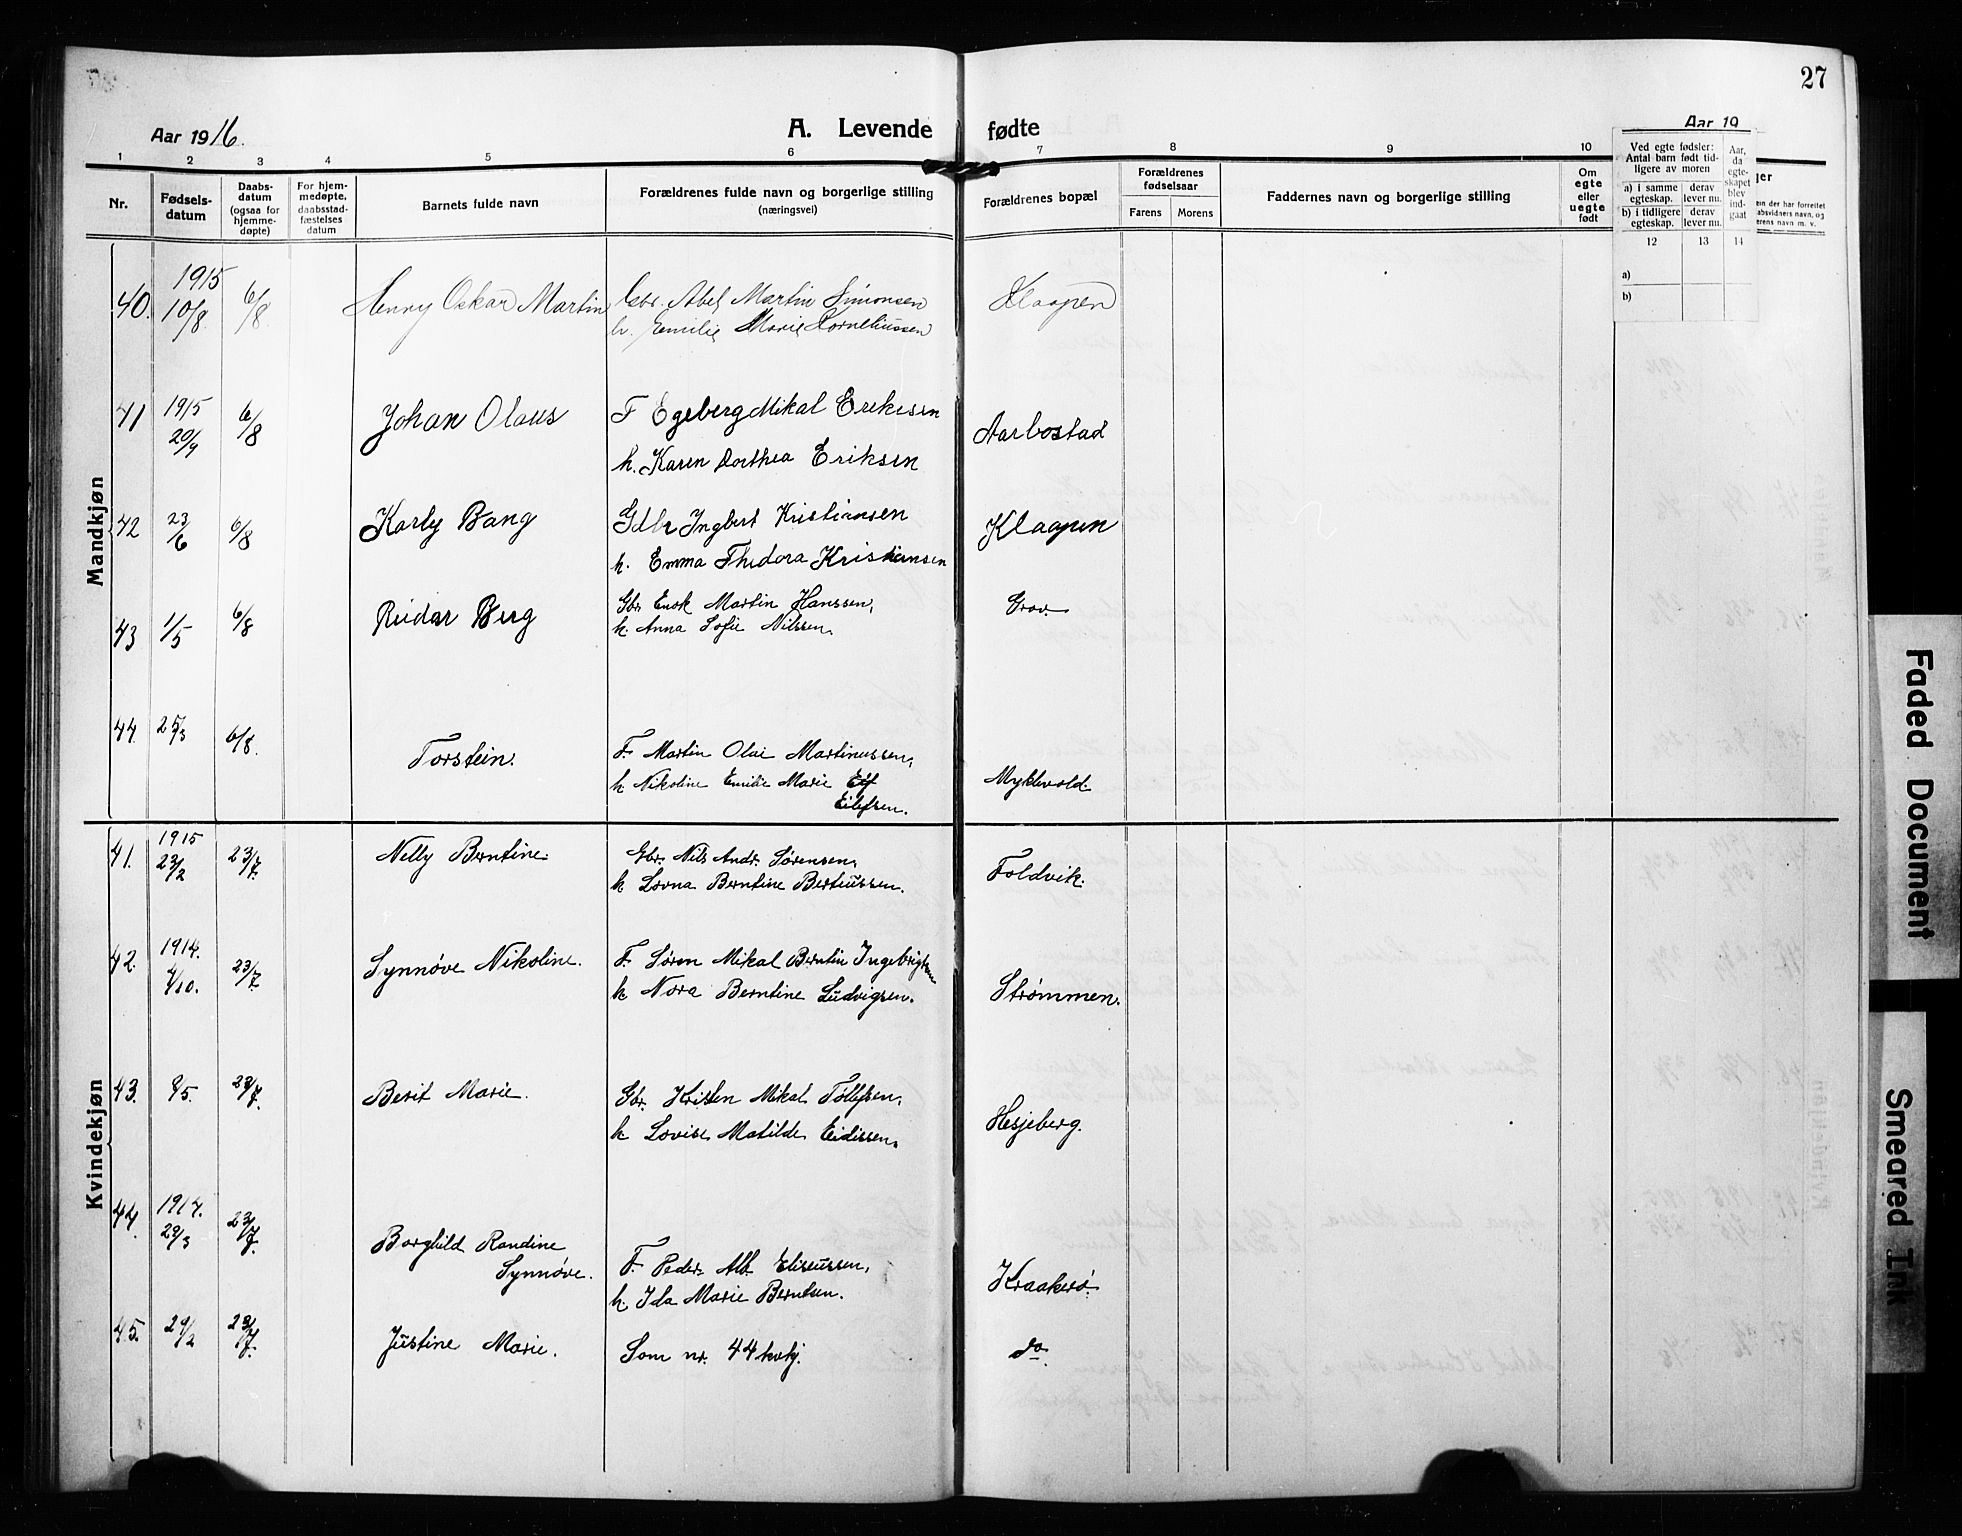 27
Aar 1916.
A. Levende fødte
Aar 19
1 2 3 4 5 6 7 8 9 10
Nr.
Fødsels-
datum
Daabs-
datum
(ogsaa for
hjemme-
døpte)
For hjem-
medøpte,
daabsstad-
fæstelses
datum
Barnets fulde navn
Forældrenes fulde navn og borgerlige stilling
(næringsvei)
Forældrenes bopæl
Forældrenes
fødselsaar
Farens Morens
Faddernes navn og borgerlige stilling
Om
egte
eller
uegte
født
Ved egte fødsler:
Antal barn født tid-
ligere av moren
a) i samme
egteskap.
derav
lever nu.
b) i tidligere
egteskap.
derav
lever nu.
Aar,
da
egte-
skapet
blev
ind-
gaat
12 13 14
a)
b)
ger
en der har forrettet
absvidners navn, og
erens navn m. v.
Mandkjøn
40. 1915 10/8 6/8. Henny Oskar Martin Gbr. Abel Martin Simonsen Klaapen
h. Emilie Marie Corneliussen
41 1915 20/9 6/8 Johan Olaus F Egeberg Mikal Eriksen Aarbostad
h. Karen Dorthea Eriksen
42 23/6 6/8 Karly Bang Gdbr Ingbert Kristiansen Klaapen
h. Emma Thedora Kristiansen
43 1/5 6/8 Reidar Berg Gbr. Enok Martin Hanssen, Grov.
h. Anna Sofie Nilssen.
44. 25/3 6/8. Torstein. F. Martin Olai Martinussen,
h Nikoline Emilie Marie Elf Myklevold.
Eilefsen.
Kvindekjøn
41. 1915 23/2 23/7. Nelly Berntine. Gbr. Nils Andr. Sørensen, Foldvik.
h Lovna Berntine Berteussen.
42. 1914. 4/10. 23/7. Synnøve Nikoline. F. Søren Mikal Berntin Ingebrigtsen
h Nora Berntine Ludvigsen. Strømmen.
43. 8/5. 23/7. Berit Marie. Gbr. Kristen Mikal Tollefsen, Hesjeberg.
h Lovise Matilde Eidissen.
44. 1914. 29/3 23/7. Borghild Randine
Synnøve. F. Peder Alb Eliseussen, Kraakerø.
h. Ida Marie Berntsen.
45. 29/2 23/7. Justine Marie. Som nr. 44 kvkj. do.
Faded Document
Smeared Ink